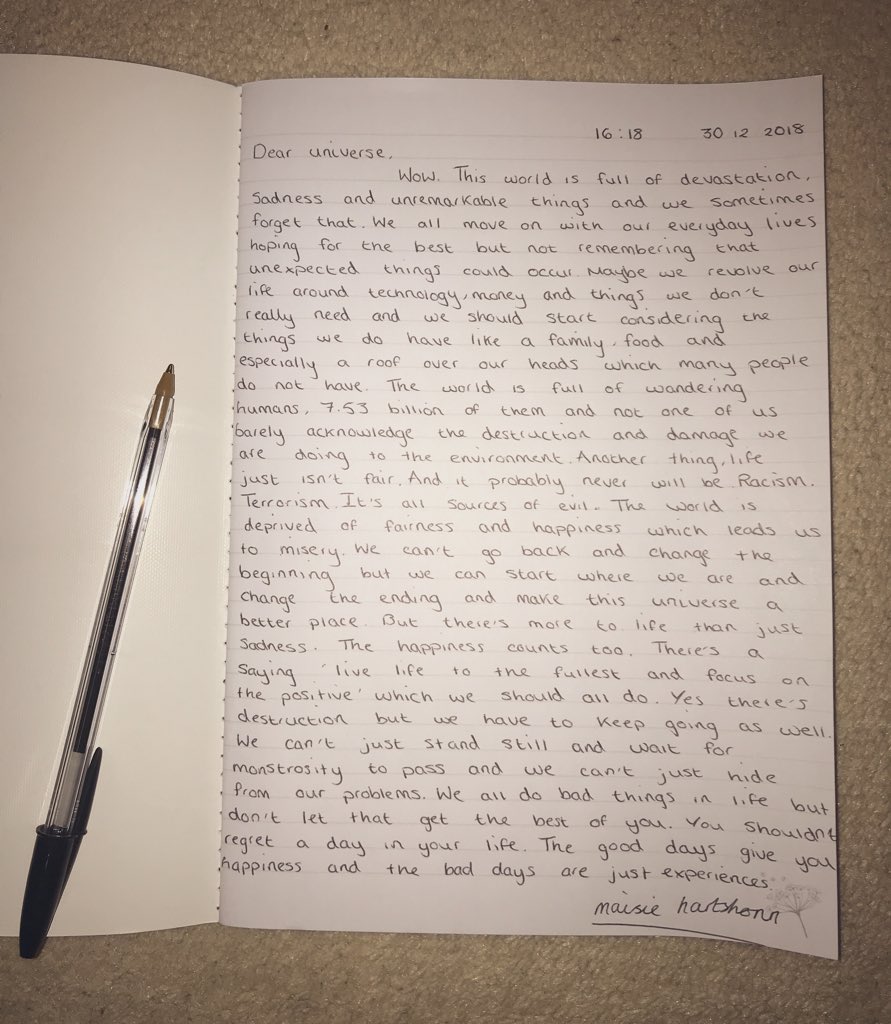 16:18 30 12 2018
Dear universe,
Wow. This world is full of devastation,
sadness and unremarkable things and we sometimes
forget that. We all move on with our everyday lives
hoping for the best but not remembering that
unexpected things could occur. Maybe we revolve our
life around technology, money and things we don't
really need and we should start considering the
things we do have like a family, food and
especially a roof over our heads which many people
do not have. The world is full of wandering
humans, 7.53 billion of them and not one of us
barely acknowledge the destruction and damage we
are doing to the environment. Another thing, life
just isn't fair. And it probably never will be. Racism.
Terrorism. It's all sources of evil. The world is
deprived of fairness and happiness which leads us
to misery. We can't go back and change the
beginning but we can start where we are and
change the ending and make this universe a
better place. But there's more to life than just
sadness. The happiness counts too. There's a
saying 'live life to the fullest and focus on
the positive' which we should all do. Yes there's
destruction but we have to keep going as well.
We can't just stand still and wait for
monstrosity to pass and we can't just hide
from our problems. We all do bad things in life but
don't let that get the best of you. You shouldn't
regret a day in your life. The good days give you
happiness and the bad days are just experiences.
maisie hartshorn